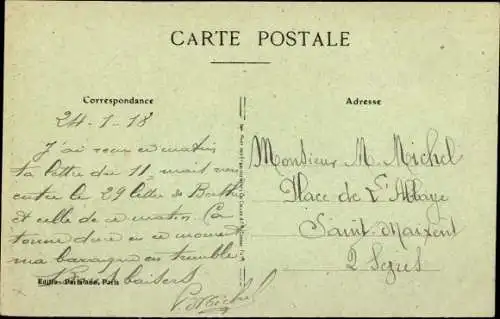 CARTE POSTALE
Correspondance
Adresse
24-1-18
J'ai reçu ce matin
ta lettre du 11, mais
contre le 29 lettre de Berthe
et celle de ce matin. Ça
tonne dure en ce moment
ma baraque en tremble
Bons baisers
P. Michel
Monsieur M. Michel
Place de L'Abbaye
Saint-Maixent
2 Sèvres
Paris